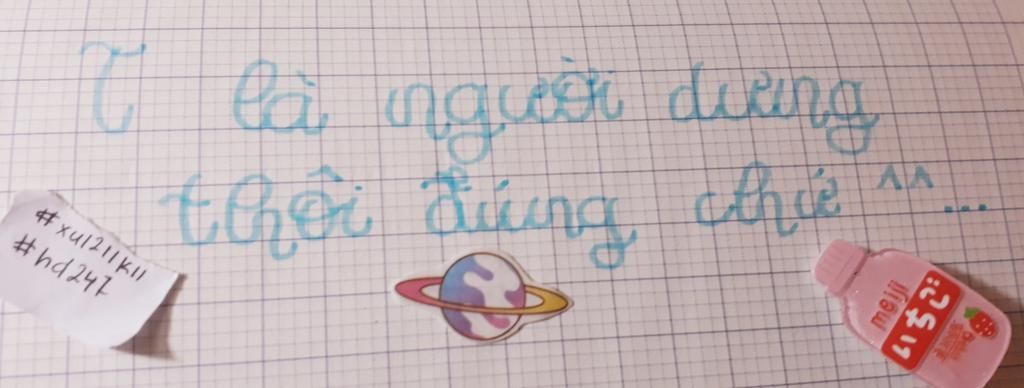 T là người dưng
thôi đúng chứ ^^...
#xu1211k11
#hd247
meiji
いちご